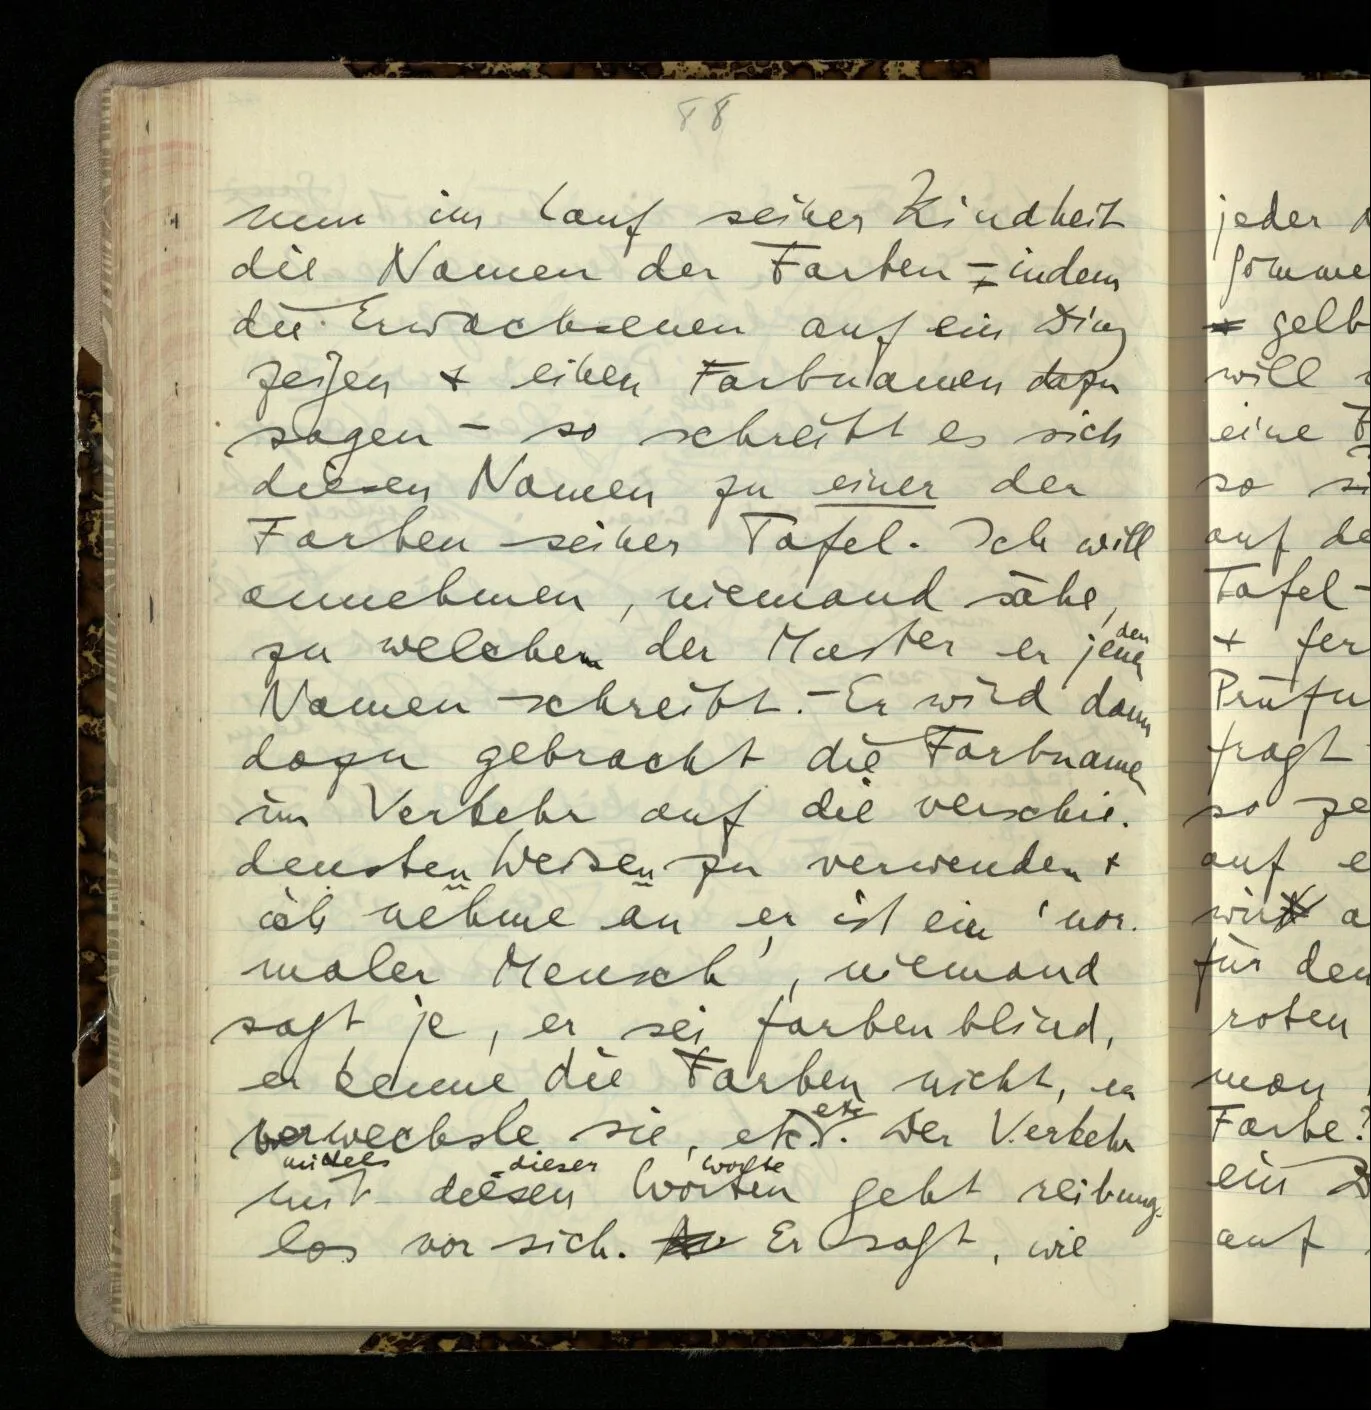 88
nun im Lauf seiner Kindheit
die Namen der Farben – indem
die Erwachsenen auf ein Ding
zeigen & einen Farbnamen dazu
sagen – so schreibt es sich
diesen Namen zu einer der
Farben seiner Tafel. Ich will
annehmen, niemand sähe,
zu welchem der Muster er jenen den
Namen schreibt. – Er wird dann
dazu gebracht die Farbnamen
im Verkehr auf die verschie-
densten Weisen zu verwenden &
ich nehme an er ist ein 'nor-
maler Mensch', niemand
sagt je, er sei farbenblind,
er kenne die Farben nicht, er
verwechsle sie, etc. etc. Der Verkehr
mittels dieser Worte
mit diesen Worten geht reibungs-
los vor sich. Er sagt, wie
jeder
gelb
will
eine
so
auf
Tafel –
&
fragt
so
auf
für den
roten
man
Farbe?
ein
auf